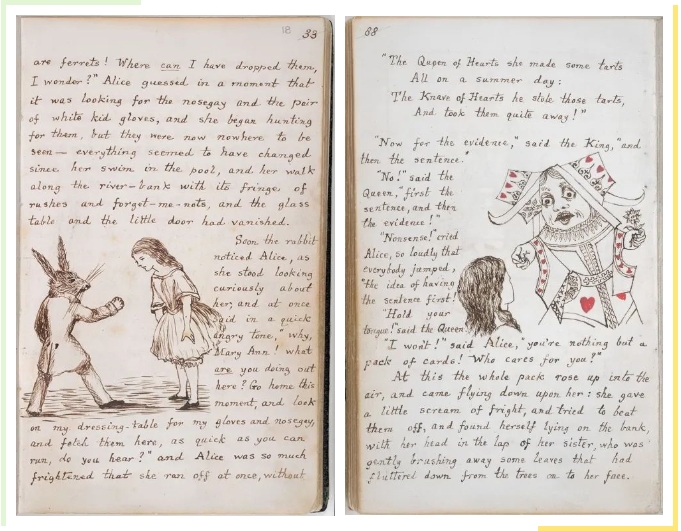 18 33
are ferrets! Where can I have dropped them,
I wonder?" Alice guessed in a moment that
it was looking for the nosegay and the pair
of white kid gloves, and she began hunting
for them, but they were now nowhere to be
seen — everything seemed to have changed
since her swim in the pool, and her walk
along the river-bank with its fringe of
rushes and forget-me-nots, and the glass
table and the little door had vanished.
Soon the rabbit
noticed Alice, as
she stood looking
curiously about
her, and at once
said in a quick
angry tone, "why,
Mary Ann! what
are you doing out
here? Go home this
moment, and look
on my dressing-table for my gloves and nosegay,
and fetch them here, as quick as you can
run, do you hear?" and Alice was so much
frightened that she ran off at once, without
88
"The Queen of Hearts she made some tarts
All on a summer day:
The Knave of Hearts he stole those tarts,
And took them quite away!"
"Now for the evidence," said the King, "and
then the sentence."
"No!" said the
Queen, "first the
sentence, and then
the evidence!"
"Nonsense!" cried
Alice, so loudly that
everybody jumped,
"the idea of having
the sentence first!
"Hold your
tongue!" said the Queen.
"I won't!" said Alice, "you're nothing but a
pack of cards! Who cares for you?"
At this the whole pack rose up into the
air, and came flying down upon her: she gave
a little scream of fright, and tried to beat
them off, and found herself lying on the bank,
with her head in the lap of her sister, who was
gently brushing away some leaves that had
fluttered down from the trees on to her face.